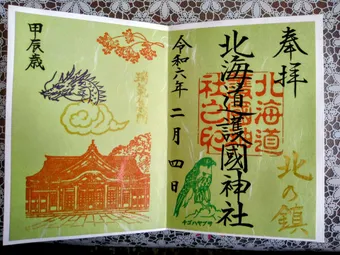 奉拝
北海道護國神社
北海道
護國神
社之印
北の鎮
令和六年二月四日
チゴハヤブサ
甲辰歳